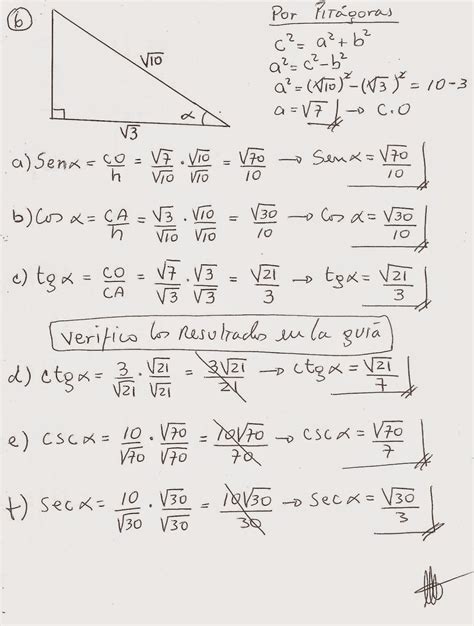 6
Por Pitágoras
c² = a² + b²
a² = c² - b²
a² = (√10)² - (√3)² = 10 - 3
a = √7 → C.O
√10
α
√3
a) Sen α = CO/h = √7/√10 · √10/√10 = √70/10 → Sen α = √70/10
b) Cos α = CA/h = √3/√10 · √10/√10 = √30/10 → Cos α = √30/10
c) tg α = CO/CA = √7/√3 · √3/√3 = √21/3 → tg α = √21/3
Verifico los Resultados en la guiá
d) ctg α = 3/√21 · √21/√21 = 3√21/21 → ctg α = √21/7
e) csc α = 10/√70 · √70/√70 = 10√70/70 → csc α = √70/7
f) Sec α = 10/√30 · √30/√30 = 10√30/30 → Sec α = √30/3